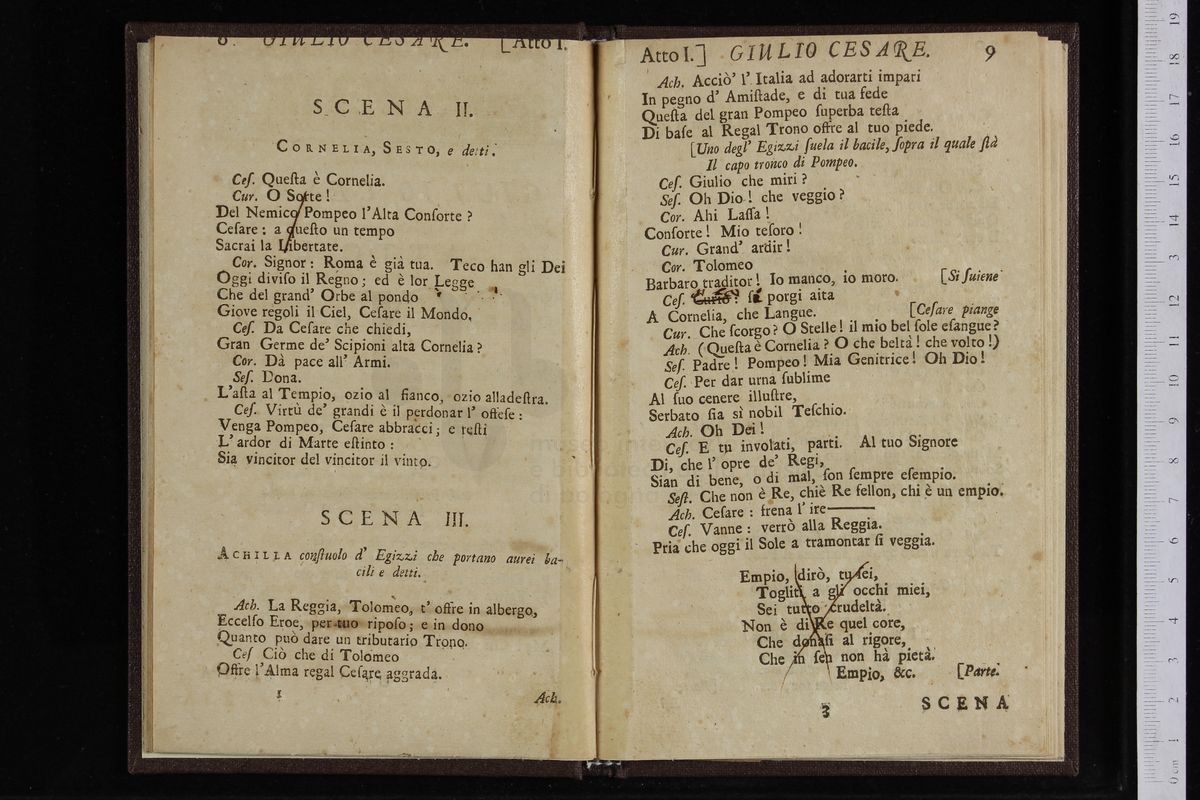 8 GIULIO CESARE. [Atto I.
SCENA II.
CORNELIA, SESTO, e detti.
Ceſ. Queſta è Cornelia.
Cur. O Sorte !
Del Nemico Pompeo l'Alta Conſorte ?
Ceſare : a queſto un tempo
Sacrai la Libertate.
Cor. Signor : Roma è già tua. Teco han gli Dei
Oggi diviſo il Regno ; ed è lor Legge
Che del grand' Orbe al pondo
Giove regoli il Ciel, Ceſare il Mondo,
Ceſ. Da Ceſare che chiedi,
Gran Germe de' Scipioni alta Cornelia ?
Cor. Dà pace all' Armi.
Seſ. Dona.
L'aſta al Tempio, ozio al fianco, ozio alladeſtra.
Ceſ. Virtù de' grandi è il perdonar l' offeſe :
Venga Pompeo, Ceſare abbracci ; e reſti
L' ardor di Marte eſtinto :
Sia vincitor del vincitor il vinto.
SCENA III.
ACHILLA conſtuolo d' Egizzi che portano aurei ba-
cili e detti.
Ach. La Reggia, Tolomeo, t' offre in albergo,
Eccelſo Eroe, per tuo ripoſo ; e in dono
Quanto può dare un tributario Trono.
Ceſ Ciò che di Tolomeo
Offre l'Alma regal Ceſare aggrada.
Ach.
Atto I.] GIULIO CESARE. 9
Ach. Acciò' l' Italia ad adorarti impari
In pegno d' Amiſtade, e di tua fede
Queſta del gran Pompeo ſuperba teſta
Di baſe al Regal Trono offre al tuo piede.
[Uno degl' Egizzi ſuela il bacile, ſopra il quale ſtà
Il capo tronco di Pompeo.
Ceſ. Giulio che miri ?
Seſ. Oh Dio ! che veggio ?
Cor. Ahi Laſſa !
Conſorte ! Mio teſoro !
Cur. Grand' ardir !
Cor. Tolomeo
Barbaro traditor ! Io manco, io moro. [Si ſuiene
Ceſ. Curio ? porgi aita
A Cornelia, che Langue. [Ceſare piange
Cur. Che ſcorgo ? O Stelle ! il mio bel ſole eſangue ?
Ach. (Queſta è Cornelia ? O che beltà ! che volto !)
Seſ. Padre ! Pompeo ! Mia Genitrice ! Oh Dio !
Ceſ. Per dar urna ſublime
Al ſuo cenere illuſtre,
Serbato ſia sì nobil Teſchio.
Ach. Oh Dei !
Ceſ. E tu involati, parti. Al tuo Signore
Di, che l' opre de' Regi,
Sian di bene, o di mal, ſon ſempre eſempio.
Seſt. Che non è Re, chiè Re fellon, chi è un empio.
Ach. Ceſare : frena l' ire——
Ceſ. Vanne : verrò alla Reggia.
Pria che oggi il Sole a tramontar ſi veggia.
Empio, dirò, tu ſei,
Togliti a gli occhi miei,
Sei tutto crudeltà.
Non è di Re quel core,
Che donaſi al rigore,
Che in ſen non hà pietà.
Empio, &c. [Parte.
SCENA